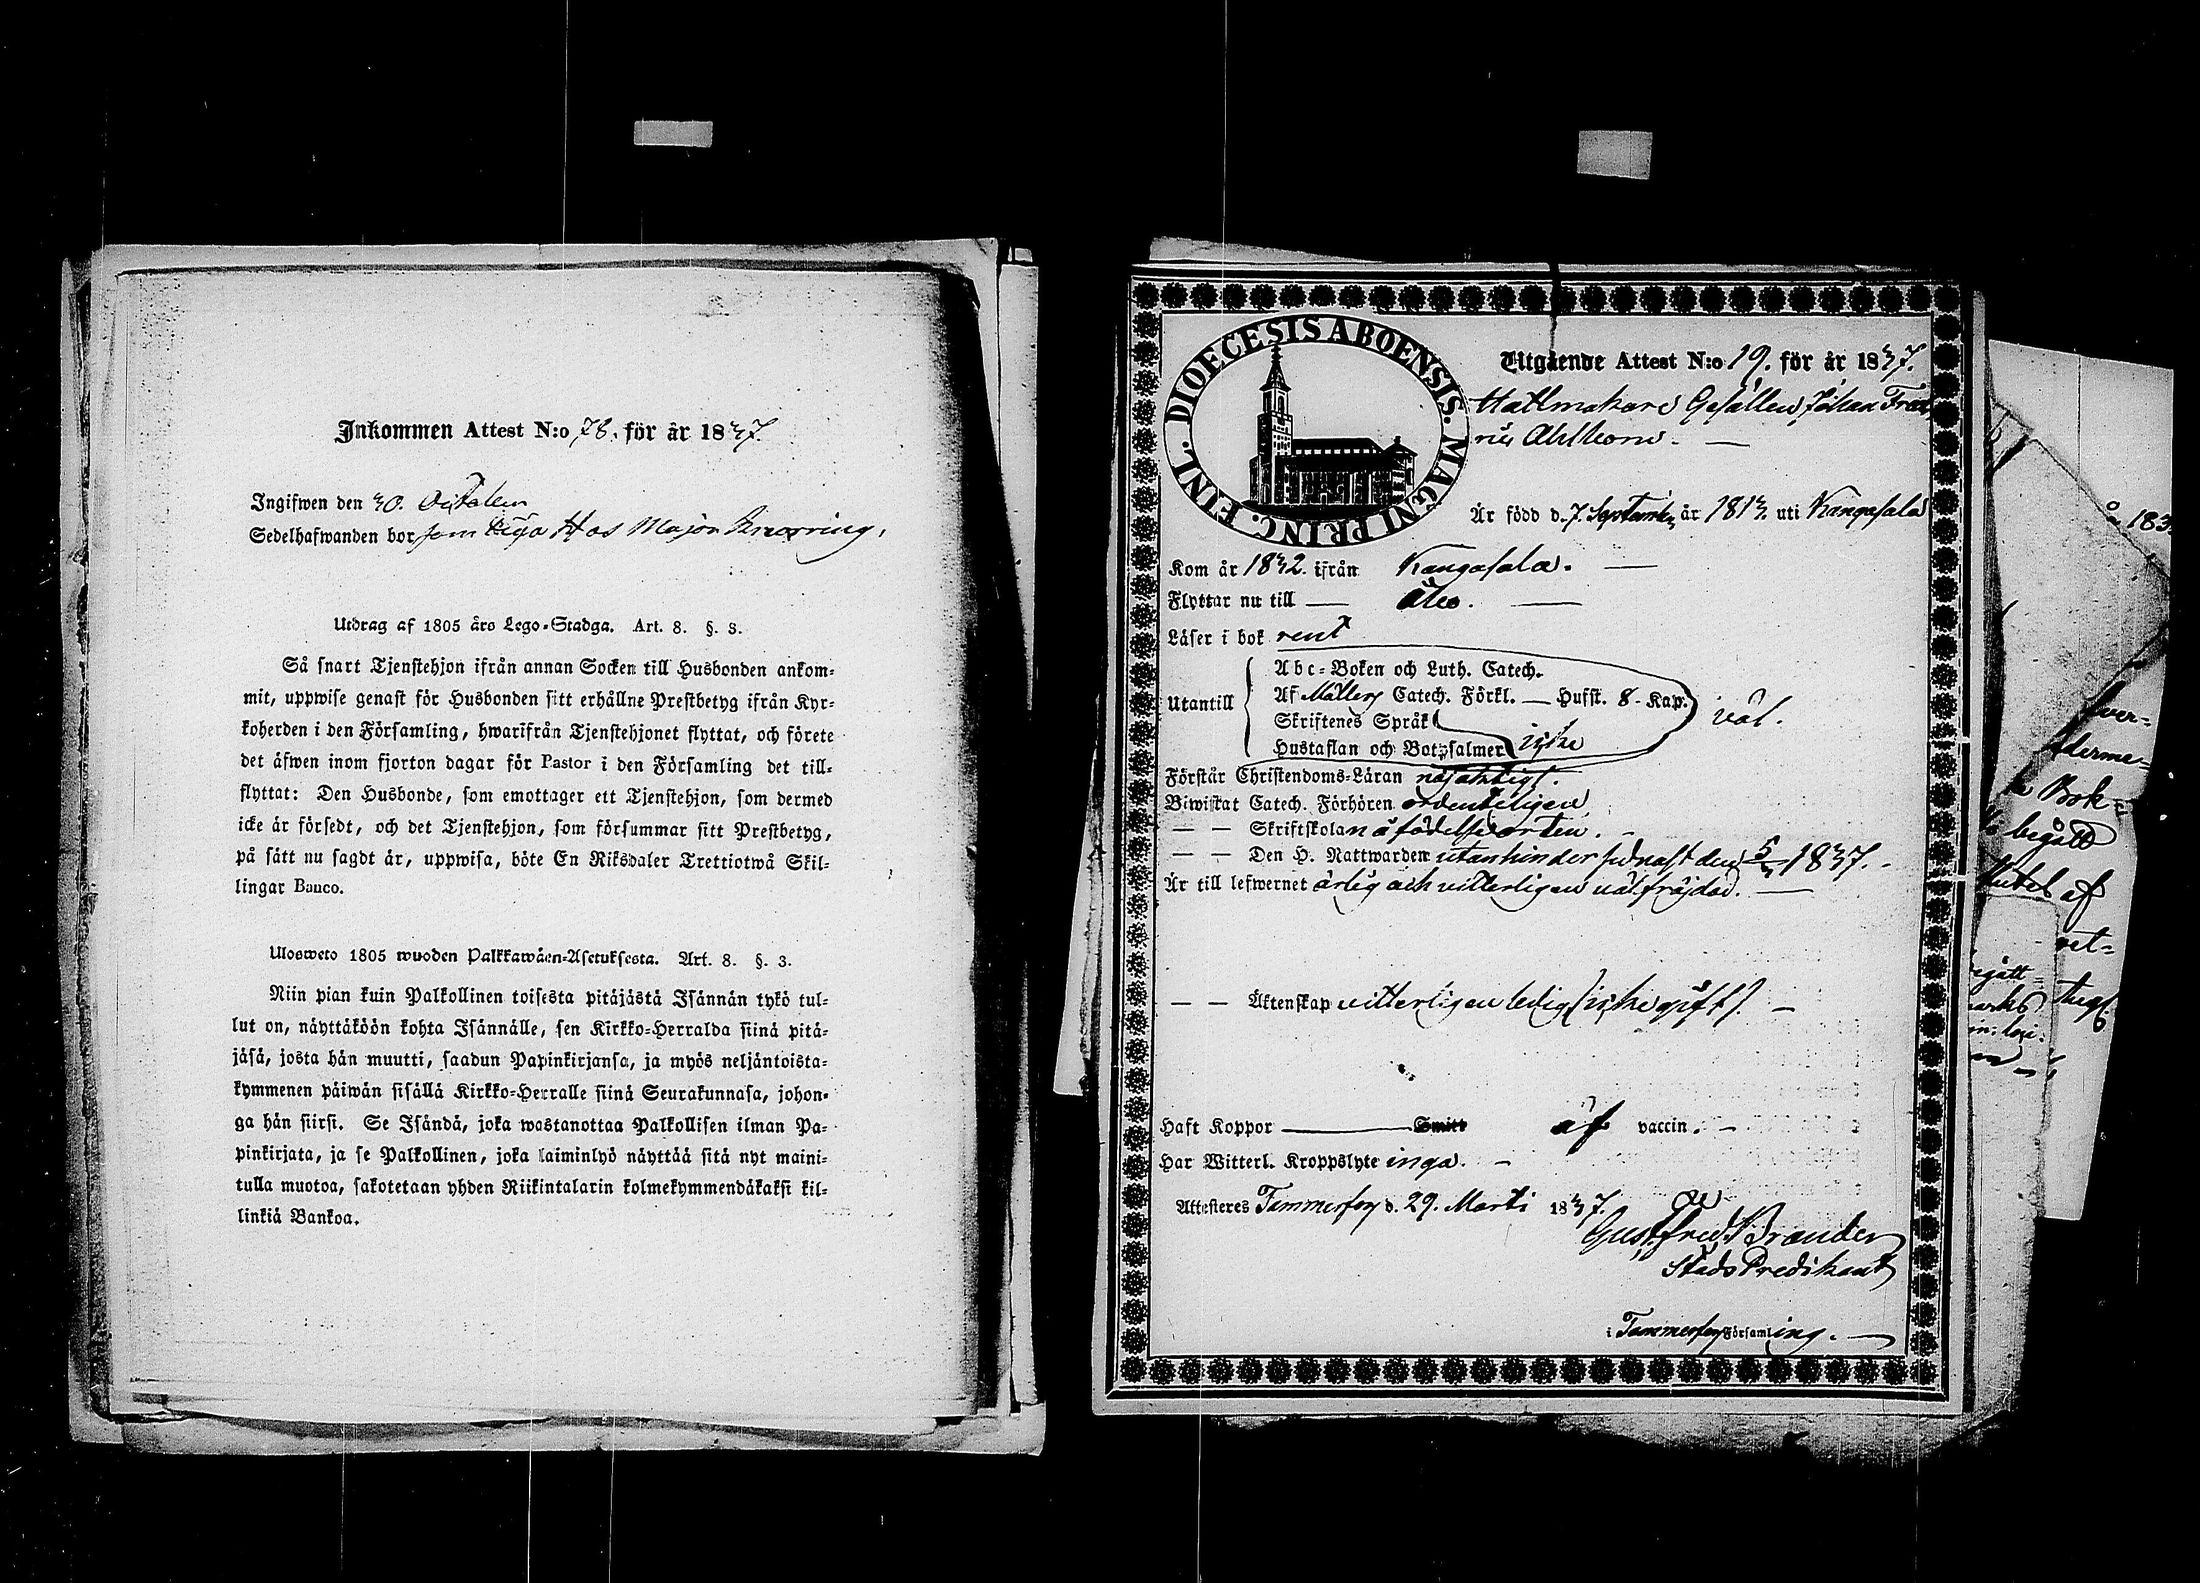 Inkommen Attest N:o 78. för år 1837.
Ingifwen den 30. October
Sedelhafwanden bor som piga Hos Major Knorring.
Utdrag af 1805 års Lego-Stadga. Art. 8. §. 3.
Så snart Tjenstehjon ifrån annan Socken till Husbonden ankom-
mit, uppwise genast för Husbonden sitt erhållne Prestbetyg ifrån Kyr-
koherden i den Församling, hwarifrån Tjenstehjonet flyttat, och förete
det äfwen inom fjorton dagar för Pastor i den Församling det till-
flyttat: Den Husbonde, som emottager ett Tjenstehjon, som dermed
icke är försedt, och det Tjenstehjon, som försummar sitt Prestbetyg,
på sätt nu sagdt är, uppwisa, böte En Riksdaler Trettiotwå Skil-
lingar Banco.
Ulosweto 1805 wuoden Palkkawäen-Asetuksesta. Art. 8. §. 3.
Niin pian kuin Palkollinen toisesta pitäjästä Isännän tykö tul-
lut on, näyttäköön kohta Isännälle, sen Kirkko-Herralda siinä pitä-
jäsä, josta hän muutti, saadun Papinkirjansa, ja myös neljäntoista-
kymmenen päiwän sisällä Kirkko-Herralle siinä Seurakunnasa, johon-
ga hän siirsi. Se Isändä, joka wastanottaa Palkollisen ilman Pa-
pinkirjata, ja se Palkollinen, joka laiminlyö näyttää sitä nyt maini-
tulla muotoa, sakotetaan yhden Riikintalarin kolmekymmendäkaksi kil-
linkiä Bankoa.
DIOECESIS ABOENSIS. MAGNI PRINC. FINL.
Utgående Attest N:o 19. för år 1837.
Hattmakare Gesällen Johan
Är född d. 7. September år 1813. uti Kangasala
Kom år 1832. ifrån Kangasala. —
Flyttar nu till — Åbo. —
Läser i bok rent
Utantill
Abc-Boken och Luth. Catech.
Af Möllers Catech. Förkl. — Husst. 8. Kap.
Skriftenes Språk
Hustaflan och Botpsalmer icke
väl.
Förstår Christendoms-Läran nöjaktigt.
Biwistat Catech. Förhören ordenteligen
— — Skriftskolan å födelseorten. -
— — Den H. Nattwarden utan hinder sednast den 5/3 1837. -
Är till lefwernet ärlig och vitterligen välfräjdad. —
— — Äktenskap vitterligen ledig (icke gift). —
Haft Koppor — Smitt af vaccin. -
Har Witterl. Kroppslyte inga. -
Attesteres Tammerfors d. 29. Martii 1837.
Gust. Fred. Brander
Stads Predikant
i Tammerfors Församling. —
år 183
begått
af